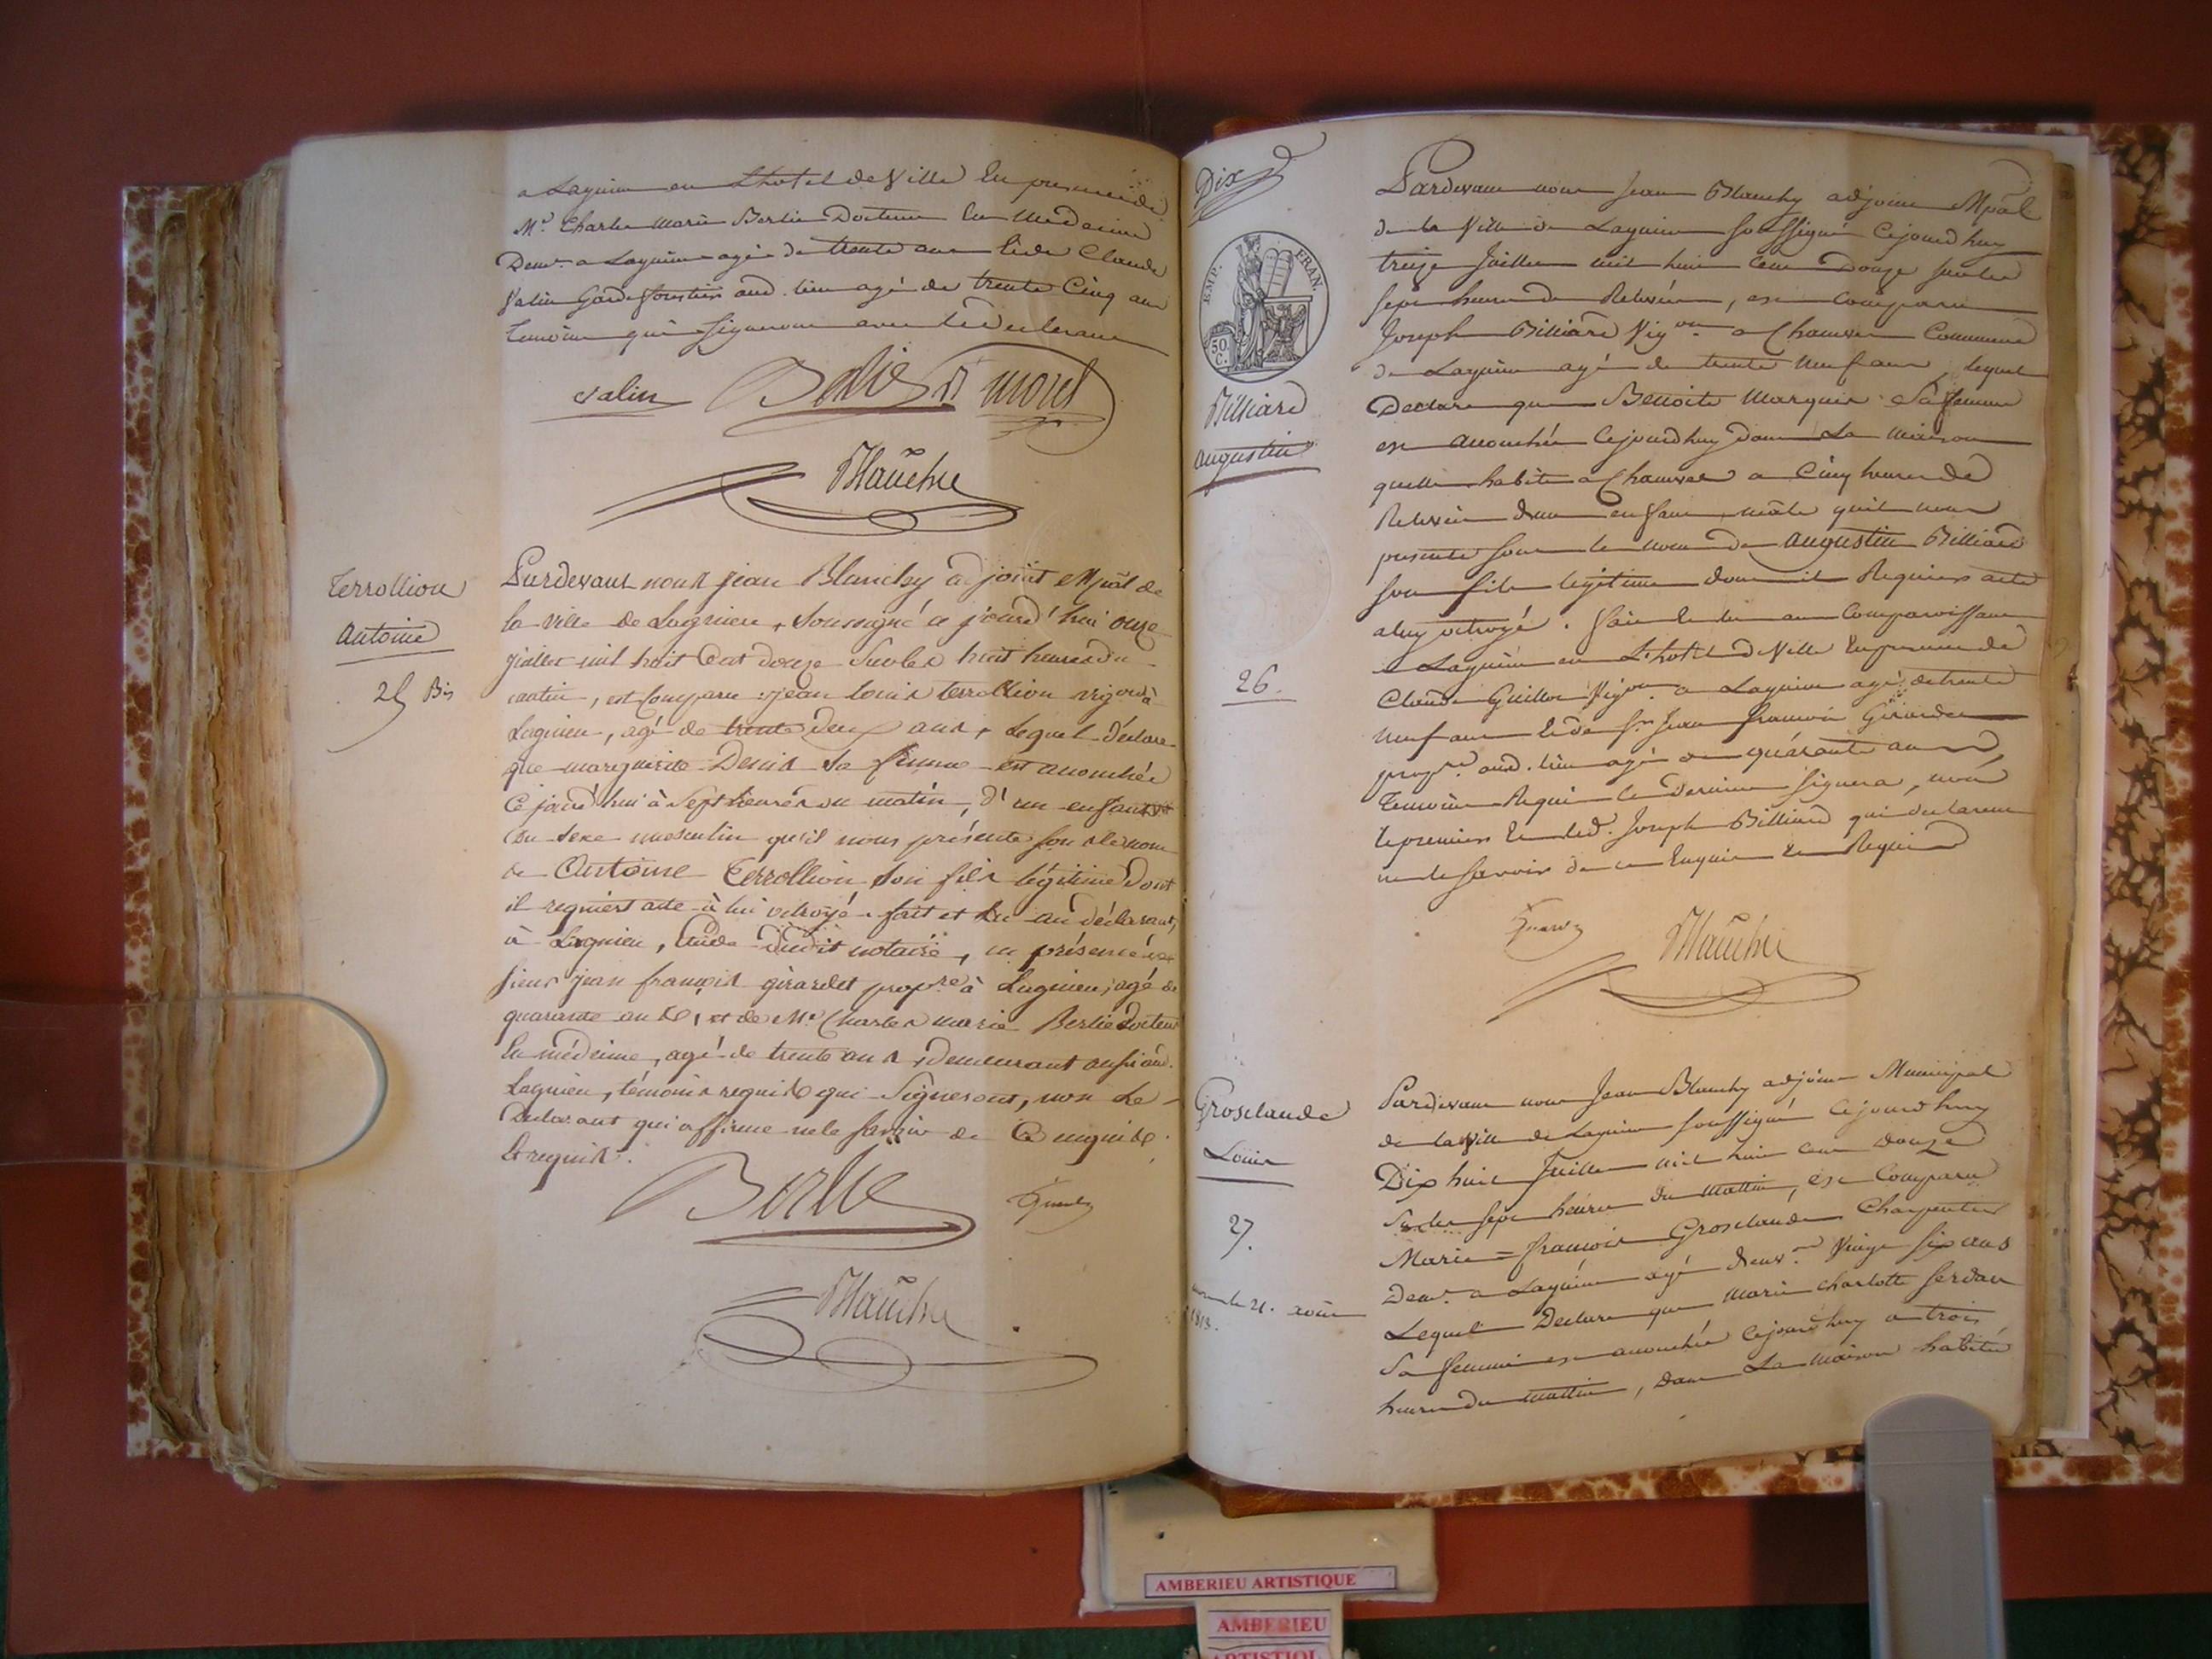 a Lagnieu en L'hotel de Ville En presence de
Mr Charles Marie Berlie Docteur En Medecine
Demt a Lagnieu agé de trente ans & de Claude
Valin Garde forestier aud. lieu agé de trente Cinq ans
temoins qui signeront avec le declarant
valin Berlie D m morel
Blanchy
Terrollion
Antoine
25 Bis
Pardevant nous jean Blanchy adjoint Mpāl de
la ville de Lagnieu, Soussigné ce jourd'hui onze
juillet mil huit Cent douze Sur les huit heures du
matin, est Comparu jean louis terrollion vigon à
Lagnieu, agé de trente deux ans, Lequel déclare
que marguerite Denis sa femme est accouchée
Ce jourd'hui à Sept heures du matin, d'un enfant
Du Sexe masculin qu'il nous présente sous le nom
de Antoine Terrollion son fils légitime Dont
il requiert acte à lui octroyé. fait et lu au déclarant,
à Lagnieu, Etude dudit notaire, en présence de
sieur jean françois girardet propre à Lagnieu, agé de
quarante ans, et de Mr Charles marie Berlie Docteur
En médecine, agé de trente ans, Demeurant aussi aud.
Lagnieu, témoins requis qui Signeront, non Le
Déclarant qui affirme ne le savoir de Ce enquis
Et requis.
Berlie
Blanchy
Dix
EMP. FRAN.
50 C.
Billiard
augustin
26.
Pardevant nous Jean Blanchy adjoint Mpāl
de la Ville de Lagnieu soussigné Cejourdhuy
treize Juillet mil huit Cent Douze sur les
sept heures de Relevée, est Comparu
Joseph Billiard Vigon a Chanves Commune
de Lagnieu agé de trente neuf ans, lequel
Declare que Benoite Marquis Sa femme
est accouchée Cejourdhuy dans La Maison
quelle habite a Chanves a Cinq heures de
Relevée d'un enfant mâle qu'il nous
presente sous le nom de Augustin Billiard
son fils légitime dont il Requiert acte
a luy octroyé. fait & lu au Comparoissant
a Lagnieu en L'hotel de Ville En presence de
Claude Guillot Vigon a Lagnieu agé de trente
neuf ans & de Sr Jean francois Girardet
propre aud. lieu agé de quarante ans
Temoins Requis le dernier signera, non
le premier & led. Joseph Billiard qui declarent
ne le savoir de ce Enquis & Requis
Blanchy
Grosclaude
Louis
27.
mort le 21. août
1813.
Pardevant nous Jean Blanchy adjoint Municipal
de la Ville de Lagnieu soussigné Cejourdhuy
Dix huit Juillet mil huit cent douze
Sur les sept heures du Mattin, est Comparu
Marie = francois Grosclaude Charpentier
Demt a Lagnieu agé d'envn Vingt six ans
Lequel Declare que Marie Charlotte ferdan
Sa femme est accouchée Cejourdhuy a trois
heures du mattin, dans La Maison habitée